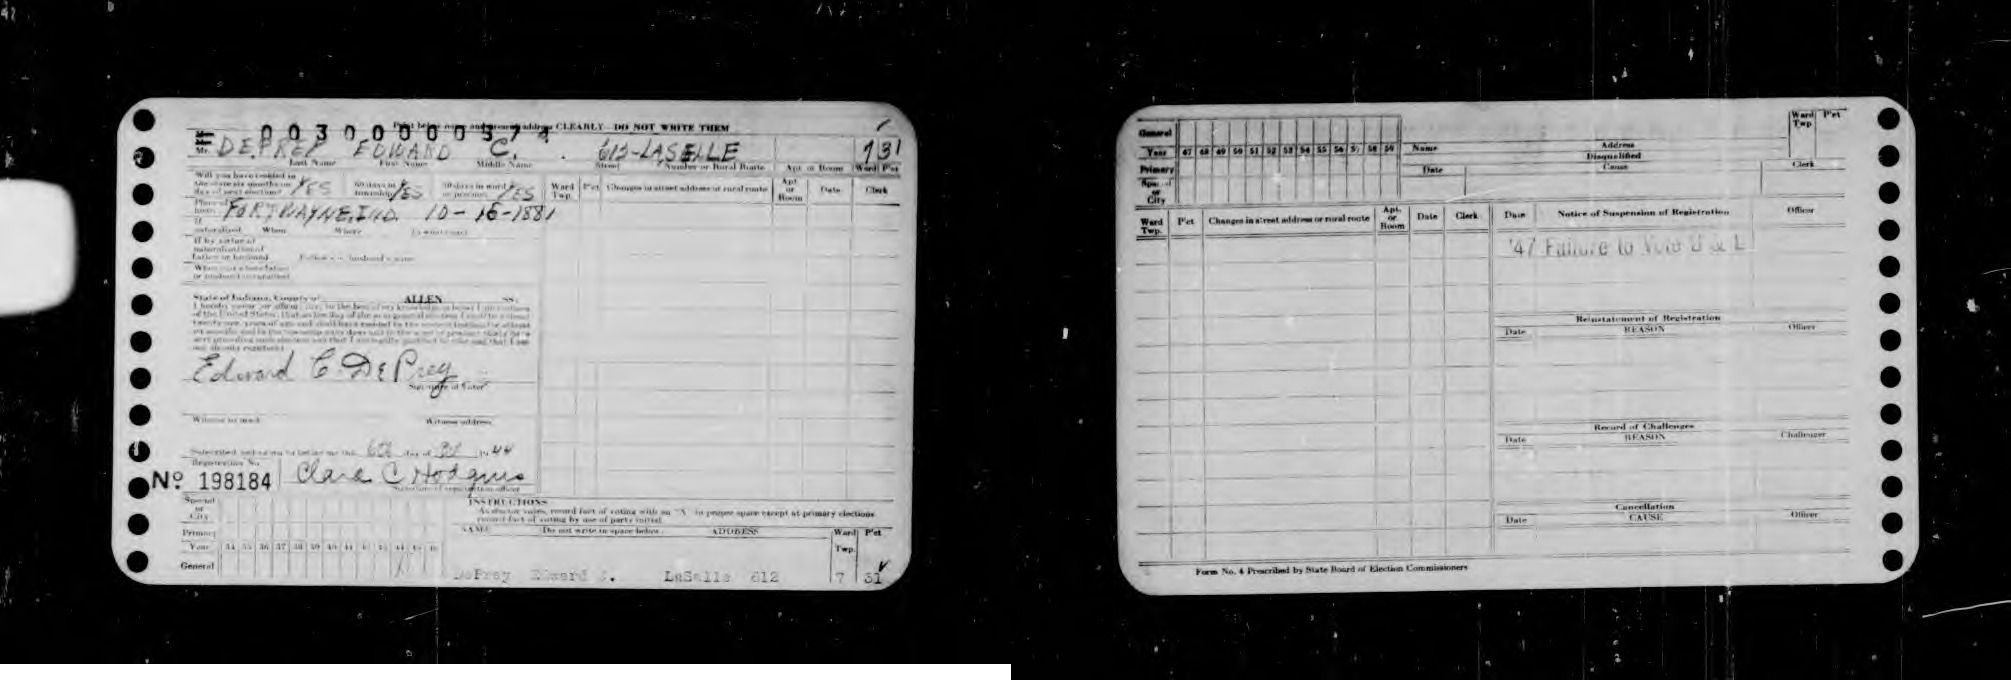 Print below name and present address CLEARLY DO NOT WRITE THEM
0030000037
Mr. DEPREY EDWARD C. 612-LASELLE 7 31
Last Name First Name Middle Name Street Number or Rural Route Apt. or Room Ward P'ct
Will you have resided in the state six months on day of next election? YES 60 days in township YES 30 days in ward or precinct YES
Ward Twp. P'ct Changes in street address or rural route Apt. or Room Date Clerk
Place of birth FORT WAYNE, IND. 10-16-1881
If naturalized When Where In what court
If by virtue of naturalization of Father or husband Father's or husband's name
State of Indiana, County of ALLEN SS:
Edward C. DePrey
Signature of Voter
Witness to mark Witness address
Subscribed and sworn to before me this 6th day of 1944
Registration No.
No 198184 Clara C Hodgins
Signature of registration officer
Special or City
INSTRUCTIONS
As elector votes, record fact of voting with an "X" in proper space except at primary elections
record fact of voting by use of party initial.
NAME Do not write in space below ADDRESS Ward Twp. P'ct
Primary
Year 34 35 36 37 38 39 40 41 42 43 44 45 46
General
DePrey Edward C. LaSelle 612 7 31
General
Year 47 48 49 50 51 52 53 54 55 56 57 58 59
Primary
Special or City
Name Address Ward Twp. P'ct
Disqualified
Date Cause Clerk
Ward Twp. P'ct Changes in street address or rural route Apt. or Room Date Clerk
Date Notice of Suspension of Registration Officer
'47 Failure to Vote
Reinstatement of Registration
Date REASON Officer
Record of Challenges
Date REASON Challenger
Cancellation
Date CAUSE Officer
Form No. 4 Prescribed by State Board of Election Commissioners